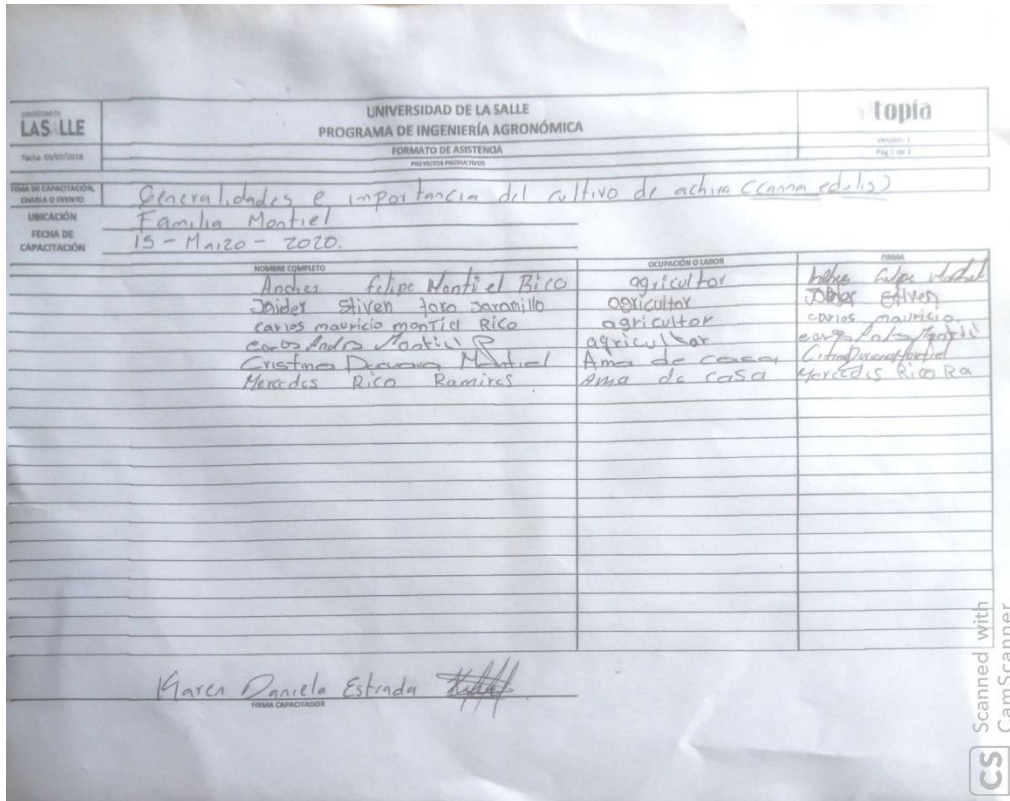 UNIVERSIDAD DE
LA SALLE
Fecha: 03/07/2018
UNIVERSIDAD DE LA SALLE
PROGRAMA DE INGENIERÍA AGRONÓMICA
FORMATO DE ASISTENCIA
PROYECTOS PRODUCTIVOS
utopía
Versión: 1
Pág 1 de 1
TEMA DE CAPACITACIÓN, CHARLA O EVENTO Generalidades e importancia del cultivo de achira (Canna edulis)
UBICACIÓN Familia Montiel
FECHA DE CAPACITACIÓN 15 - Marzo - 2020.
NOMBRE COMPLETO OCUPACIÓN O LABOR FIRMA
Andres felipe Montiel Rico agricultor Andres felipe Montiel
Jaider Stiven toro Jaramillo agricultor Jaider Stiven
carlos mauricio monTiel Rico agricultor carlos mauricio.
carlos Andres Montiel R agricultor carlos Andres Montiel
Cristina Montiel Ama de casa
Mercedes Rico Ramires Ama de casa Mercedes Rico Ra
Karen Daniela Estrada
FIRMA CAPACITADOR
CS Scanned with
CamScanner